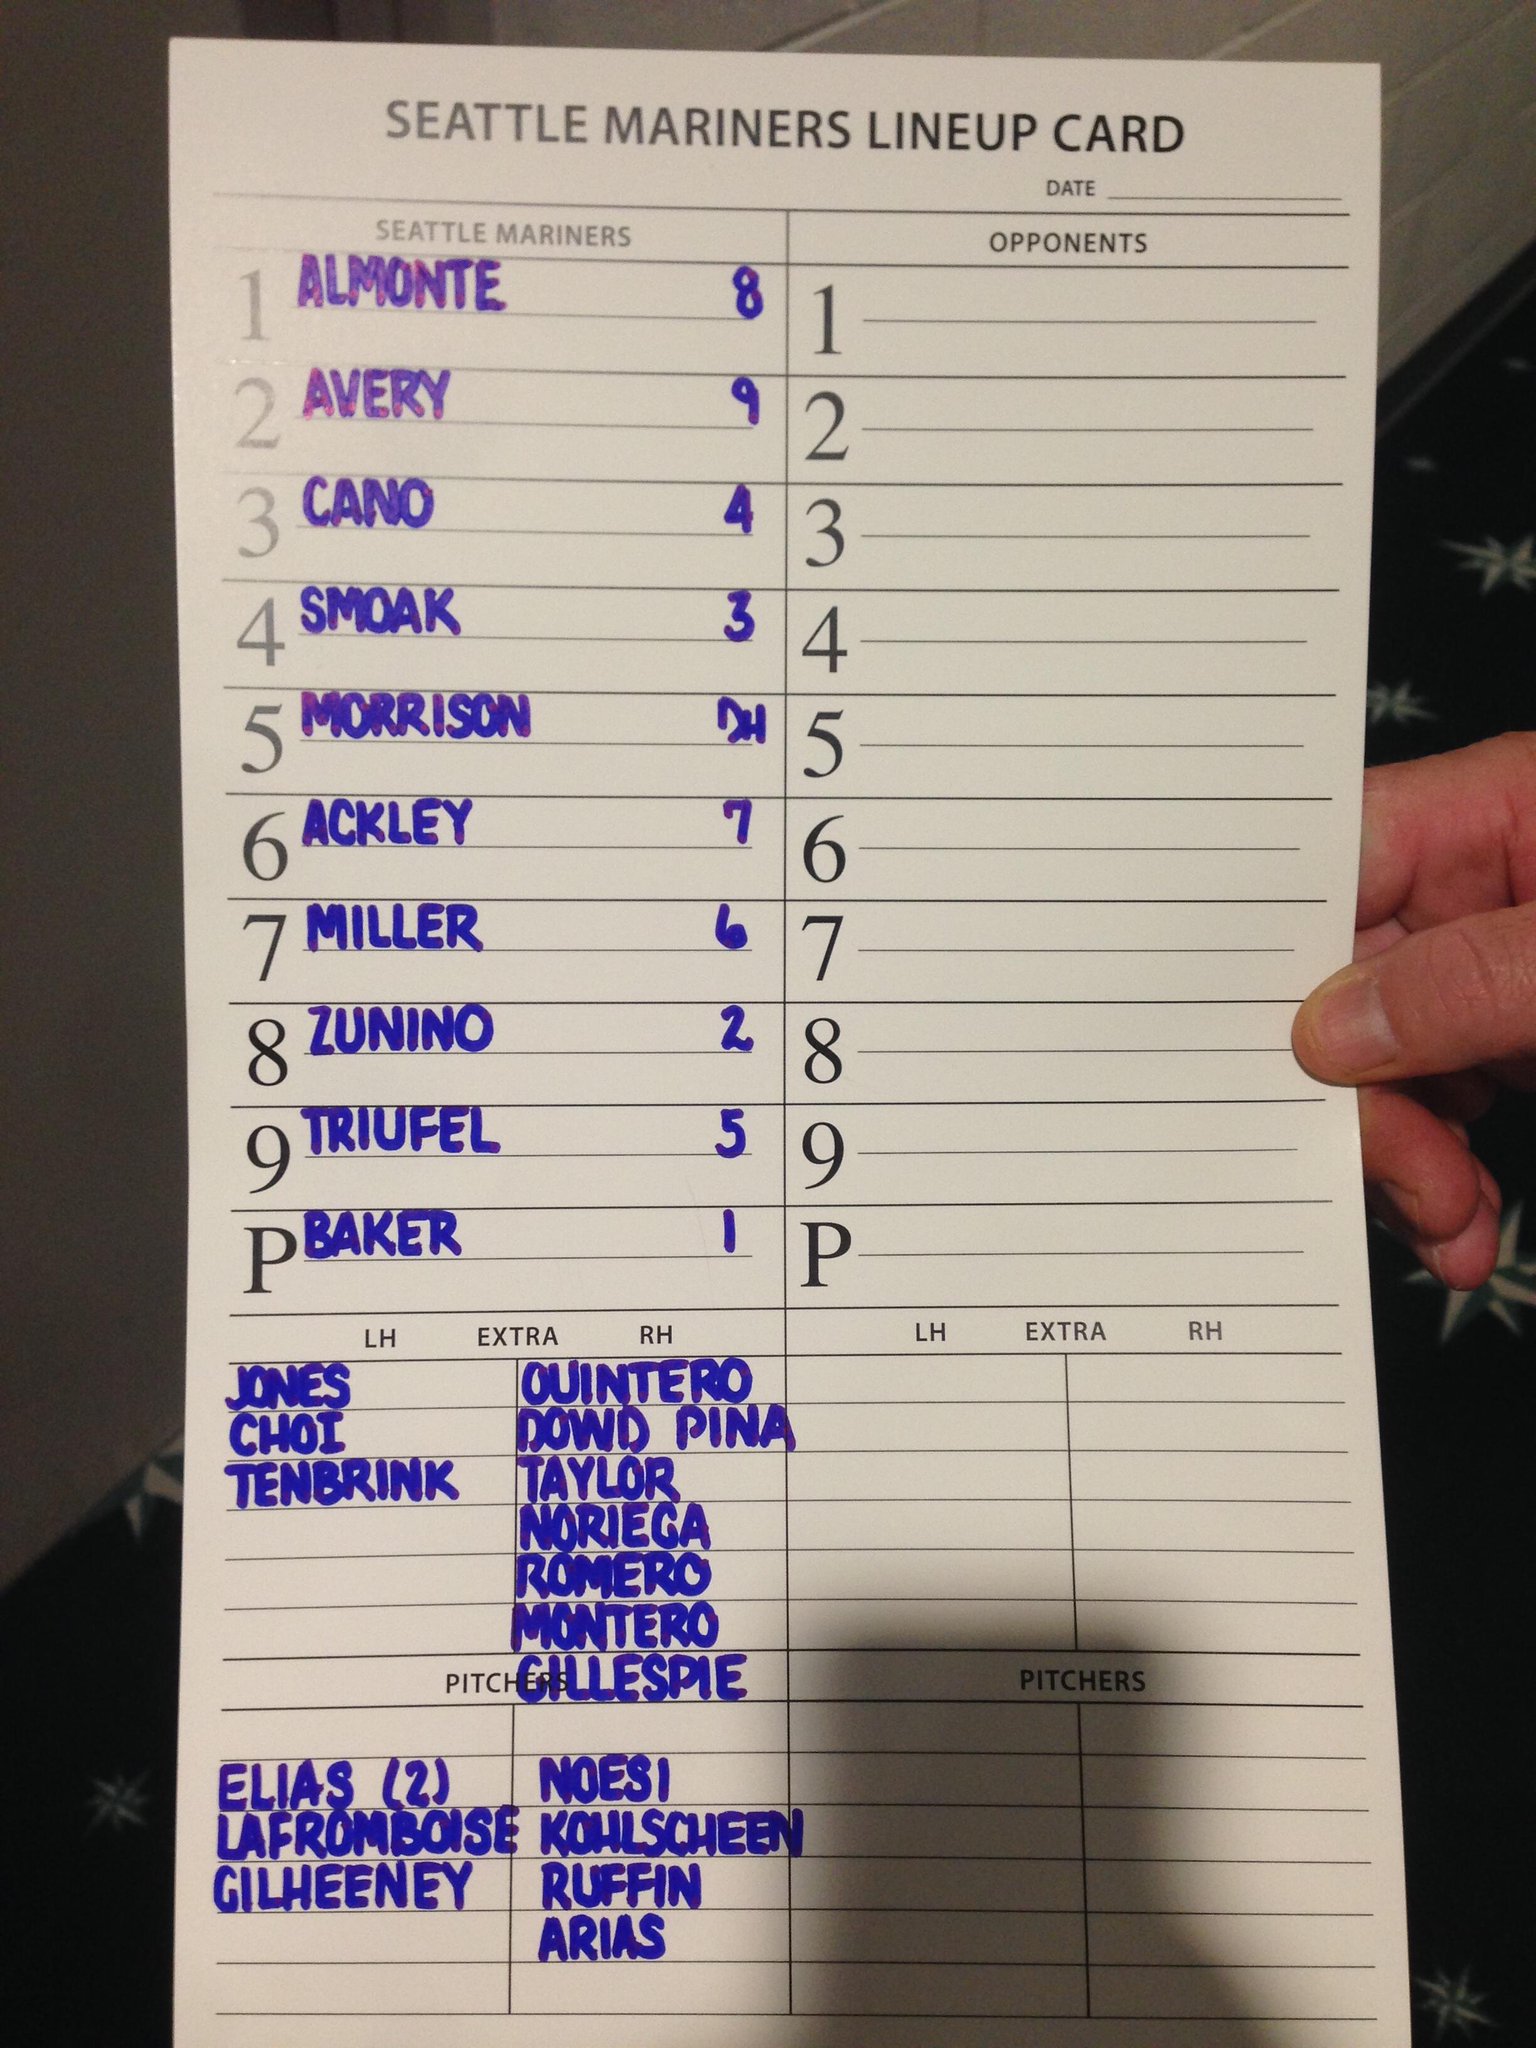 SEATTLE MARINERS LINEUP CARD
DATE
SEATTLE MARINERS OPPONENTS
1 ALMONTE 8 1
2 AVERY 9 2
3 CANO 4 3
4 SMOAK 3 4
5 MORRISON DH 5
6 ACKLEY 7 6
7 MILLER 6 7
8 ZUNINO 2 8
9 TRIUFEL 5 9
P BAKER 1 P
LH EXTRA RH LH EXTRA RH
JONES QUINTERO
CHOI DOWD PINA
TENBRINK TAYLOR
NORIEGA
ROMERO
MONTERO
GILLESPIE
PITCHERS PITCHERS
ELIAS (2) NOESI
LAFROMBOISE KOHLSCHEEN
GILHEENEY RUFFIN
ARIAS